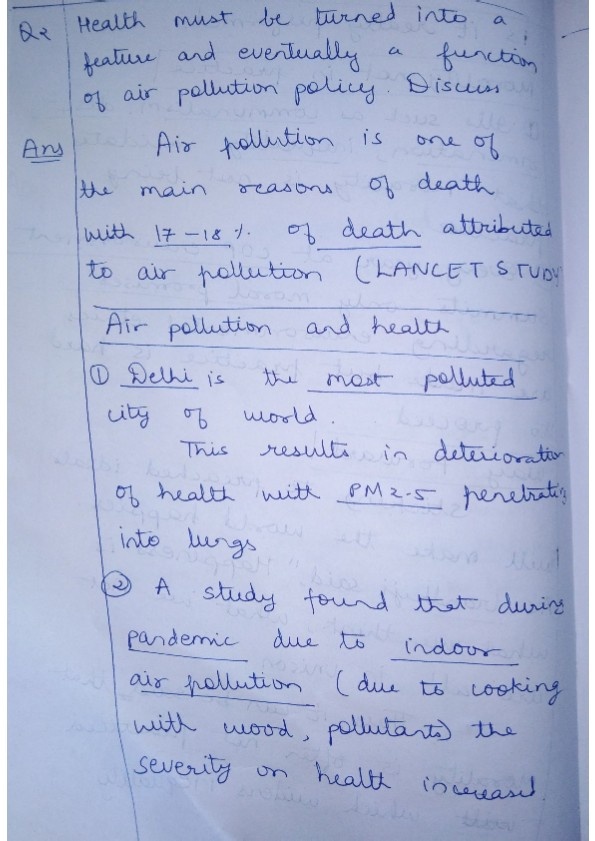 Q2 Health must be turned into a
feature and eventually a function
of air pollution policy. Discuss
Ans Air pollution is one of
the main reasons of death
with 17-18% of death attributed
to air pollution (LANCET STUDY
Air pollution and health
① Delhi is the most polluted
city of world.
This results in deterioration
of health with PM2.5 penetrating
into lungs
② A study found that during
pandemic due to indoor
air pollution (due to cooking
with wood, pollutants) the
severity on health increased.